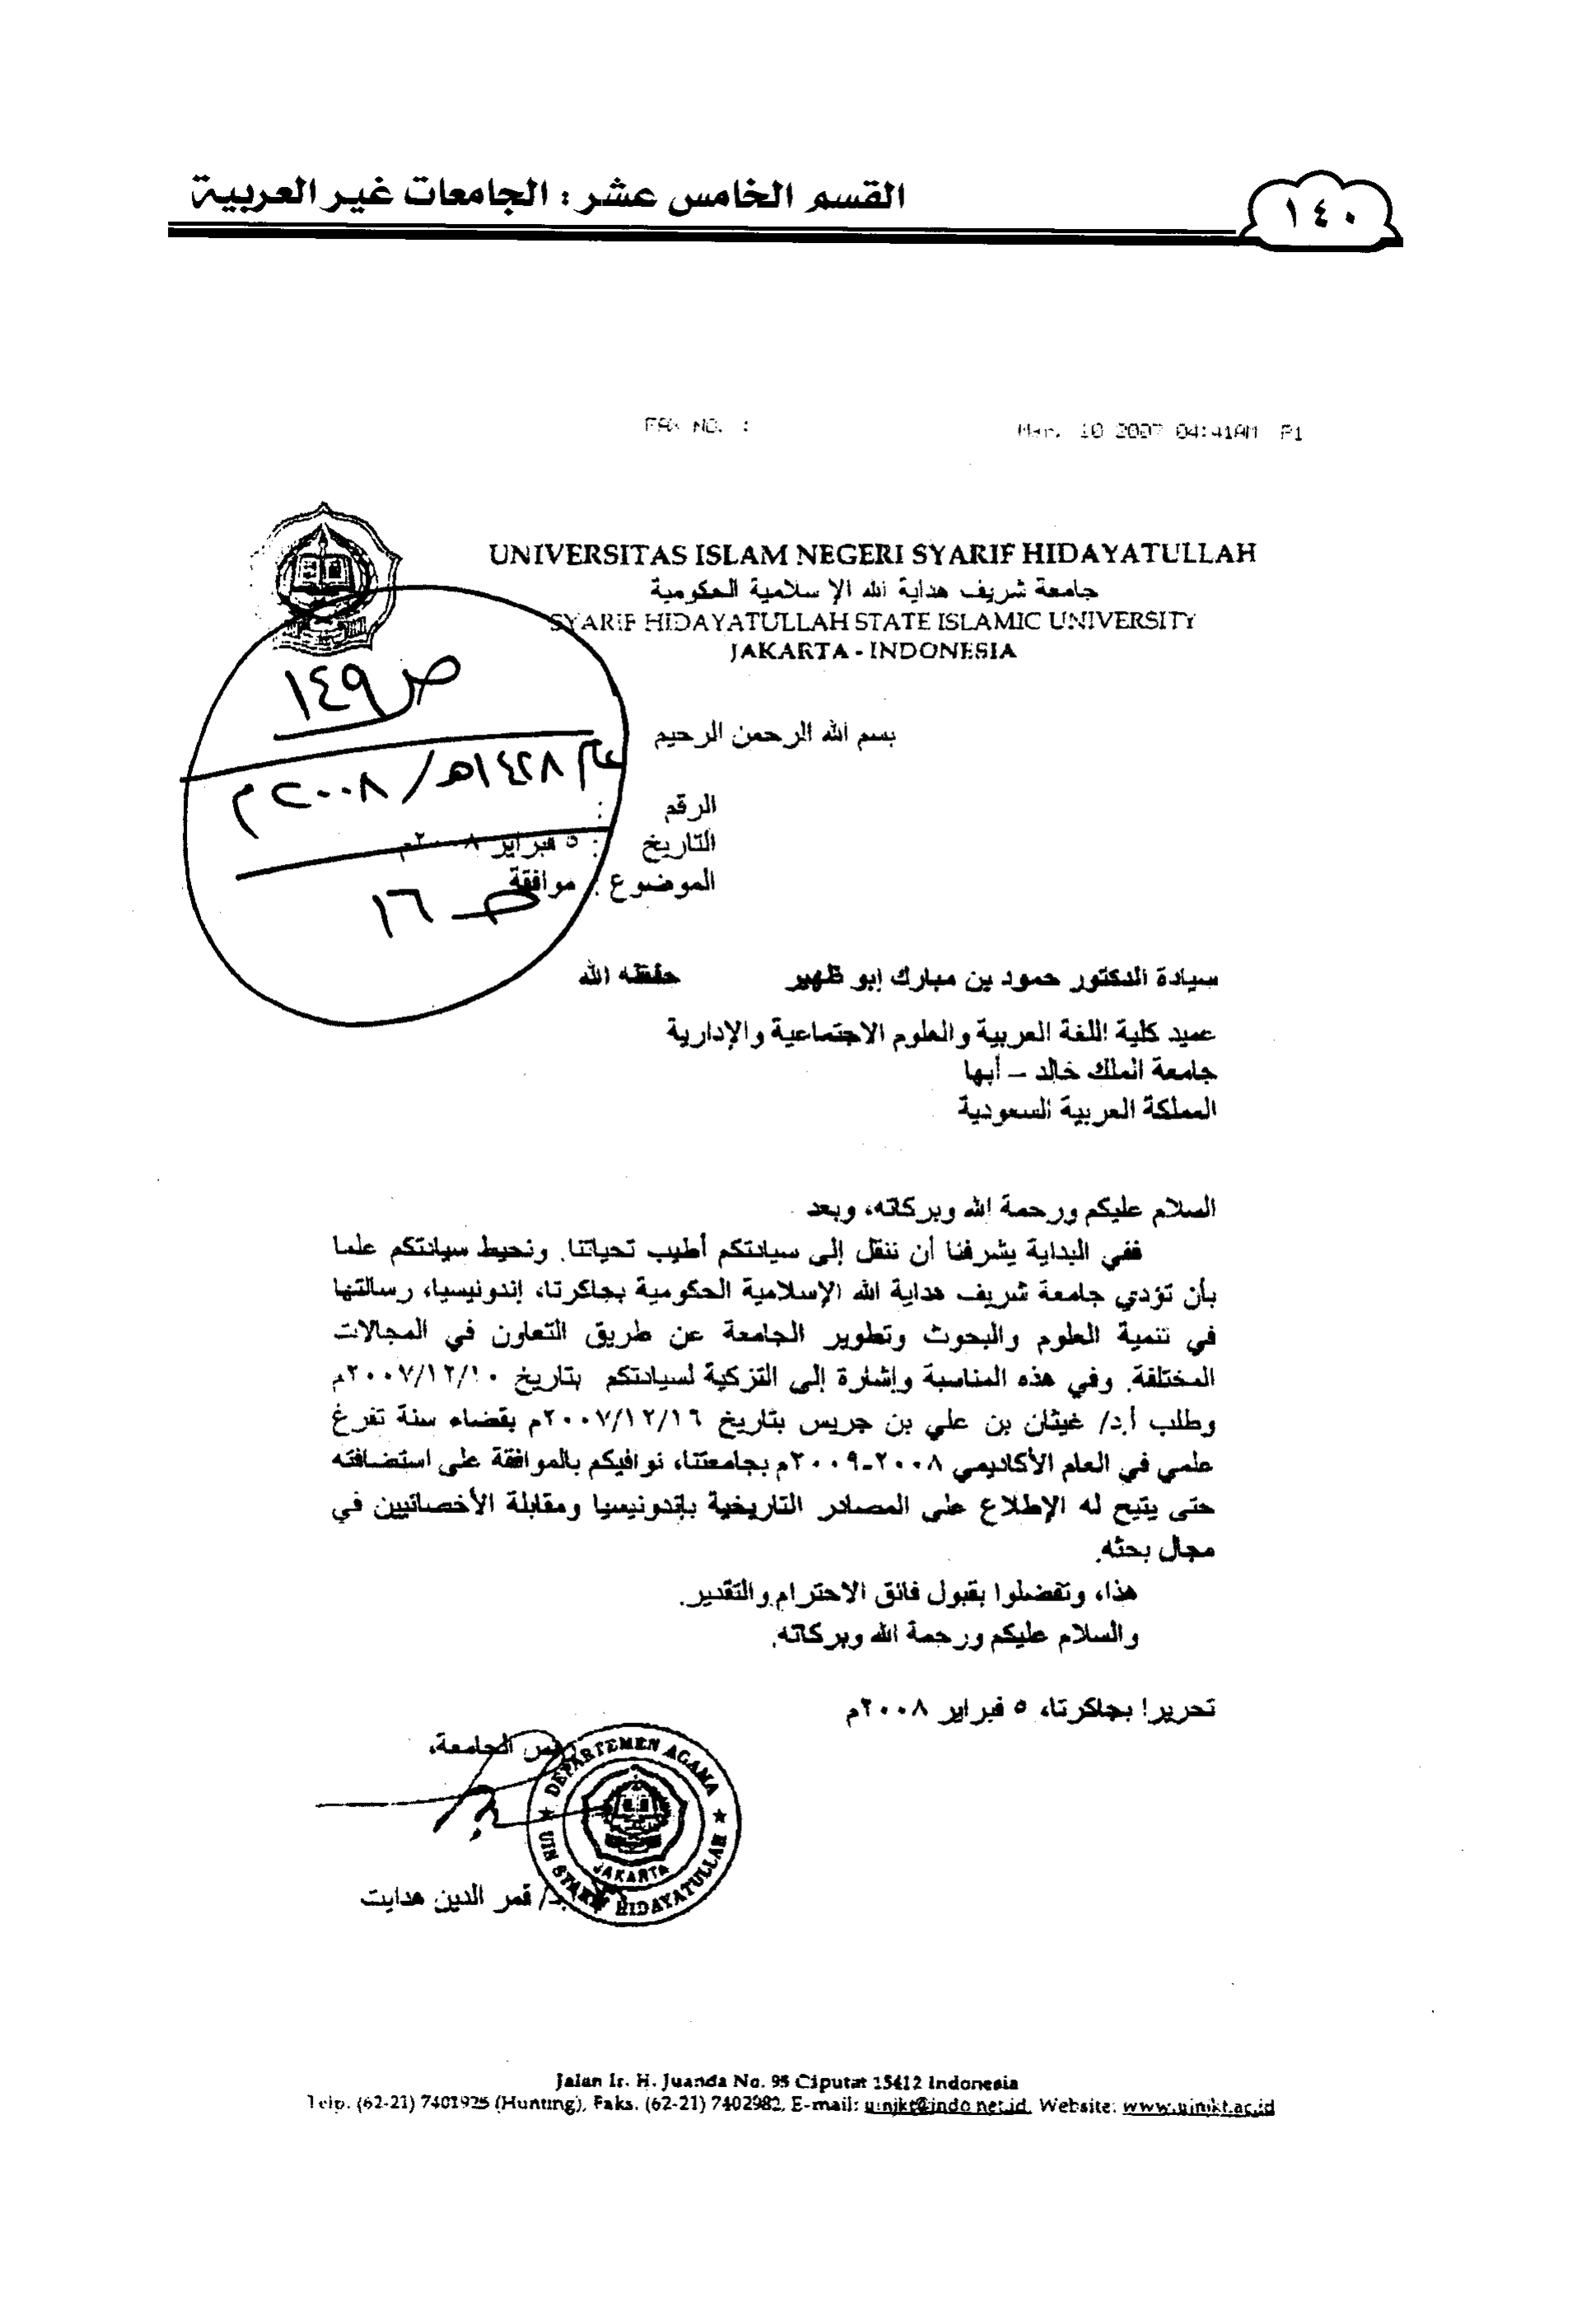 القسم الخامس عشر : الجامعات غير العربية
١٤٠
FAX NO. :
Mar. 10 2007 04:41AM P1
UNIVERSITAS ISLAM NEGERI SYARIF HIDAYATULLAH
جامعة شريف هداية الله الإسلامية الحكومية
SYARIF HIDAYATULLAH STATE ISLAMIC UNIVERSITY
JAKARTA - INDONESIA
ص ١٤٩
عام ١٤٢٨هـ / ٢٠٠٨م
ص ١٦
بسم الله الرحمن الرحيم
الرقم :
التاريخ : ٥ فبراير ٢٠٠٨م
الموضوع : موافقة
سيادة الدكتور حمود بن مبارك أبو ظهير حفظه الله
عميد كلية اللغة العربية والعلوم الاجتماعية والإدارية
جامعة الملك خالد – أبها
المملكة العربية السعودية
السلام عليكم ورحمة الله وبركاته، وبعد
ففي البداية يشرفنا أن ننقل إلى سيادتكم أطيب تحياتنا. ونحيط سيادتكم علما
بأن تؤدي جامعة شريف هداية الله الإسلامية الحكومية بجاكرتا، إندونيسيا، رسالتها
في تنمية العلوم والبحوث وتطوير الجامعة عن طريق التعاون في المجالات
المختلفة. وفي هذه المناسبة وإشارة إلى التزكية لسيادتكم بتاريخ ٢٠٠٧/١٢/١٠م
وطلب أ.د/ غيثان بن علي بن جريس بتاريخ ٢٠٠٧/١٢/١٦م بقضاء سنة تفرغ
علمي في العام الأكاديمي ٢٠٠٨-٢٠٠٩م بجامعتنا، نوافيكم بالموافقة على استضافته
حتى يتيح له الإطلاع على المصادر التاريخية بإندونيسيا ومقابلة الأخصائيين في
مجال بحثه.
هذا، وتفضلوا بقبول فائق الاحترام والتقدير.
والسلام عليكم ورحمة الله وبركاته.
تحريرا بجاكرتا، ٥ فبراير ٢٠٠٨م
رئيس الجامعة،
DEPARTEMEN AGAMA
UIN SYARIF HIDAYATULLAH
JAKARTA
د/ قمر الدين هدايت
Jalan Ir. H. Juanda No. 95 Ciputat 15412 Indonesia
Telp. (62-21) 7401925 (Hunting), Faks. (62-21) 7402982, E-mail: uinjkt@indo.net.id, Website: www.uinjkt.ac.id